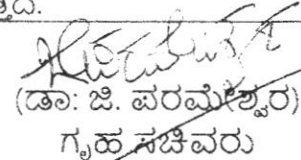 ತ್ತದೆ.
(ಡಾ: ಜಿ. ಪರಮೇಶ್ವರ)
ಗೃಹ ಸಚಿವರು